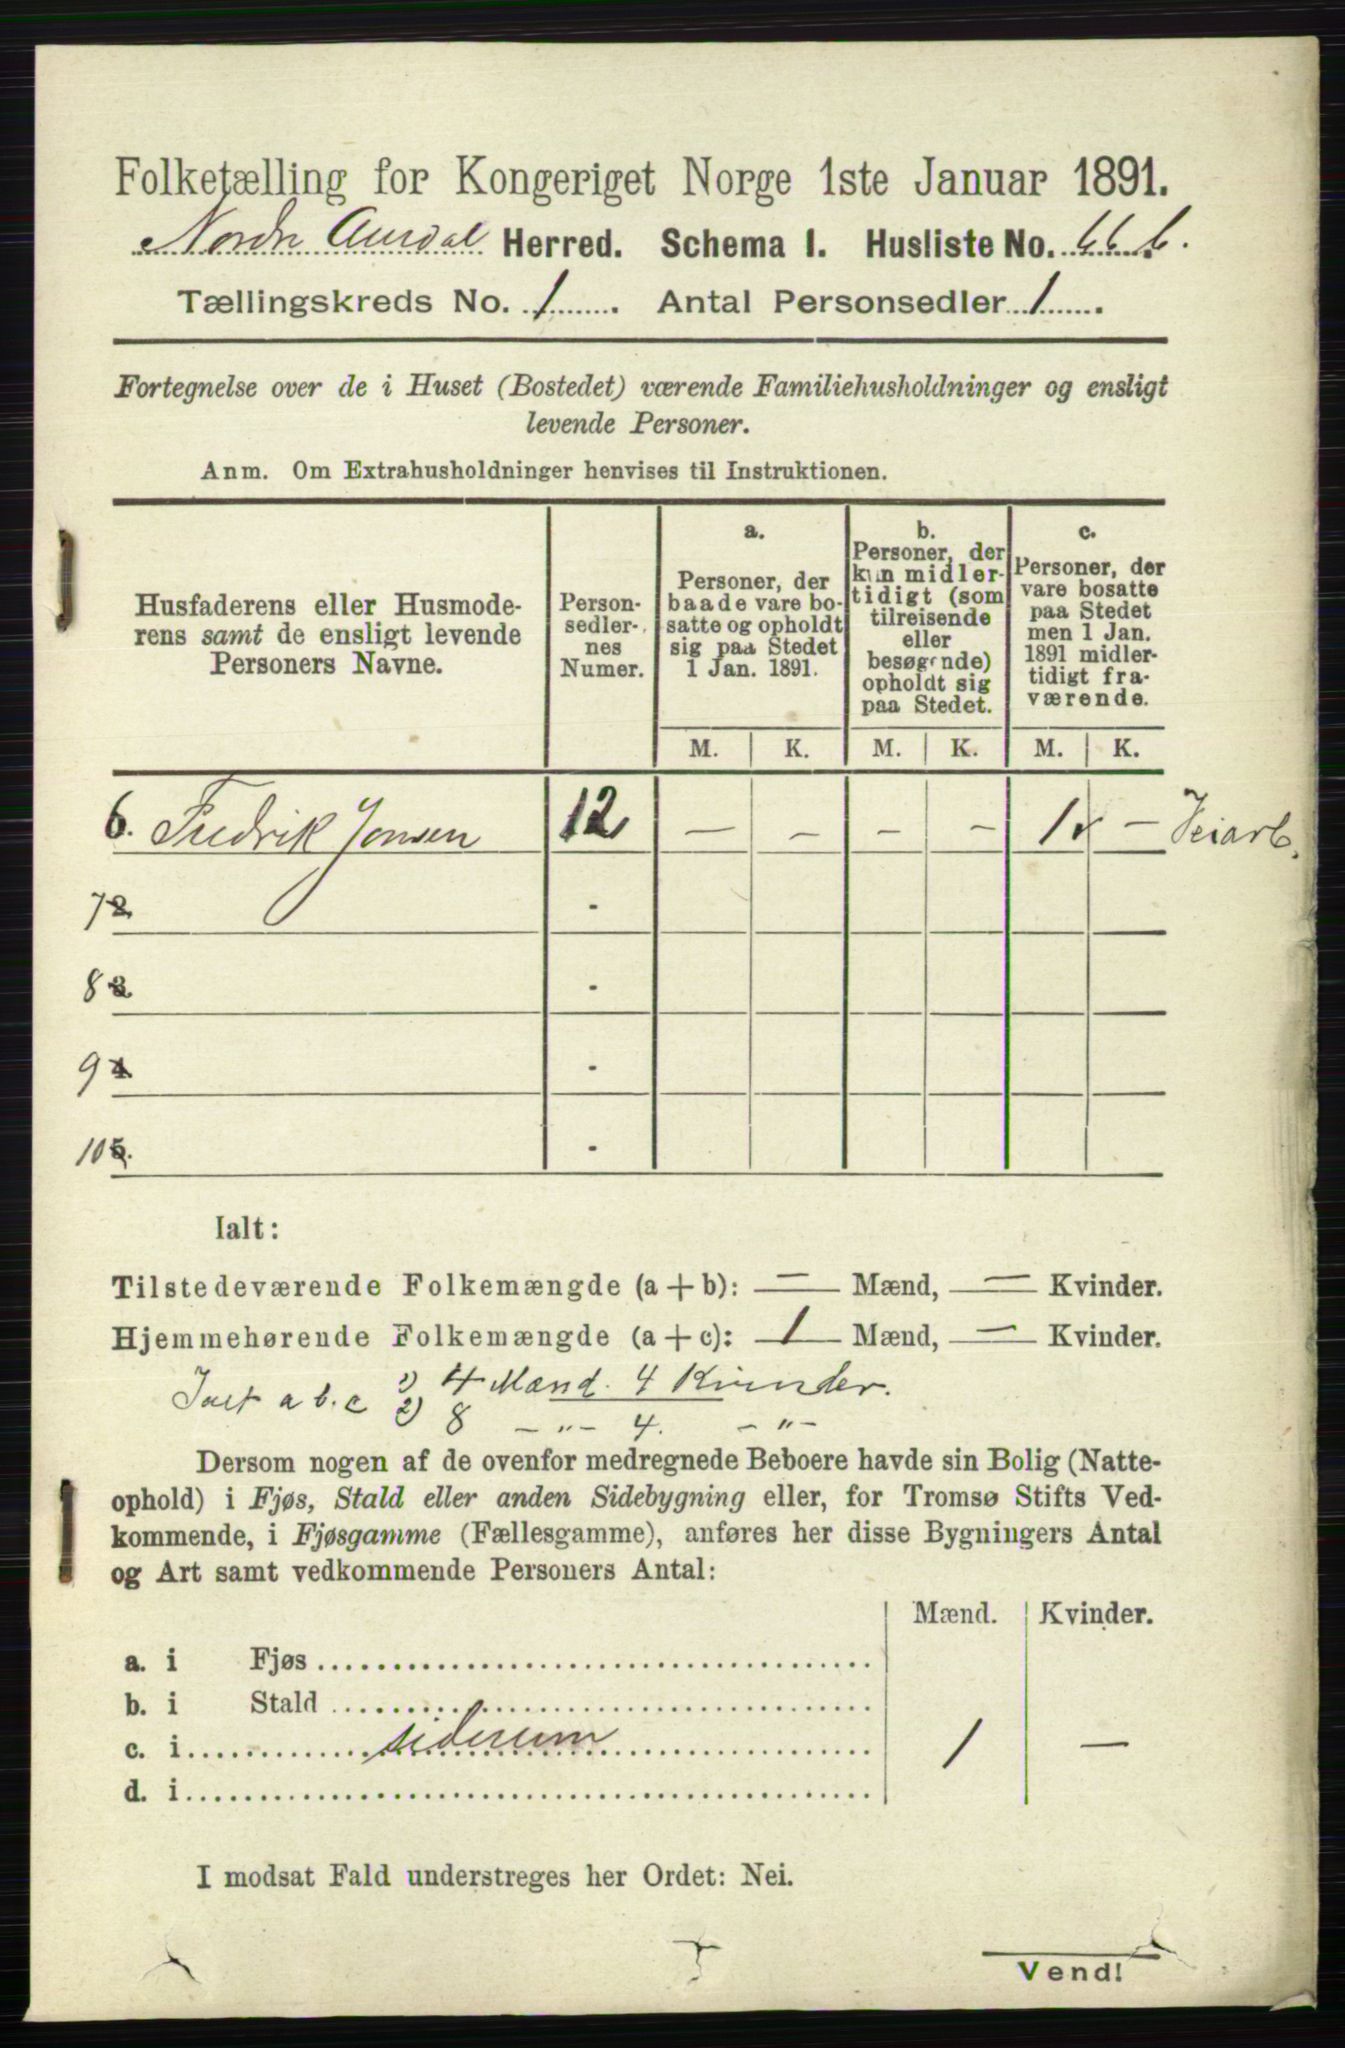 Folketælling for Kongeriget Norge 1ste Januar 1891.
Nordre Aurdal Herred. Schema I. Husliste No. 66 b.
Tællingskreds No. 1. Antal Personsedler 1.
Fortegnelse over de i Huset (Bostedet) værende Familiehusholdninger og ensligt
levende Personer.
Anm. Om Extrahusholdninger henvises til Instruktionen.
Husfaderens eller Husmode-
rens samt de ensligt levende
Personers Navne.
Person-
sedler-
nes
Numer.
a.
Personer, der
baade vare bo-
satte og opholdt
sig paa Stedet
1 Jan. 1891.
b.
Personer, der
kun midler-
tidigt (som
tilreisende
eller
besøgende)
opholdt sig
paa Stedet.
c.
Personer, der
vare bosatte
paa Stedet
men 1 Jan.
1891 midler-
tidigt fra-
værende.
M. K. M. K. M. K.
6. Fredrik Jonsen 12 — — — — 1 — Veiarb.
7 2 -
8 3 -
9 4 -
10 5. -
Ialt:
Tilstedeværende Folkemængde (a + b): — Mænd, — Kvinder.
Hjemmehørende Folkemængde (a + c): 1 Mænd, — Kvinder.
a b. c 1) 4 Mænd. 4 Kvinder.
2) 8 — " — 4. — " —
Dersom nogen af de ovenfor medregnede Beboere havde sin Bolig (Natte-
ophold) i Fjøs, Stald eller anden Sidebygning eller, for Tromsø Stifts Ved-
kommende, i Fjøsgamme (Fællesgamme), anføres her disse Bygningers Antal
og Art samt vedkommende Personers Antal:
Mænd. Kvinder.
a. i Fjøs
b. i Stald
c. i siderum 1 —
d. i
I modsat Fald understreges her Ordet: Nei.
Vend!